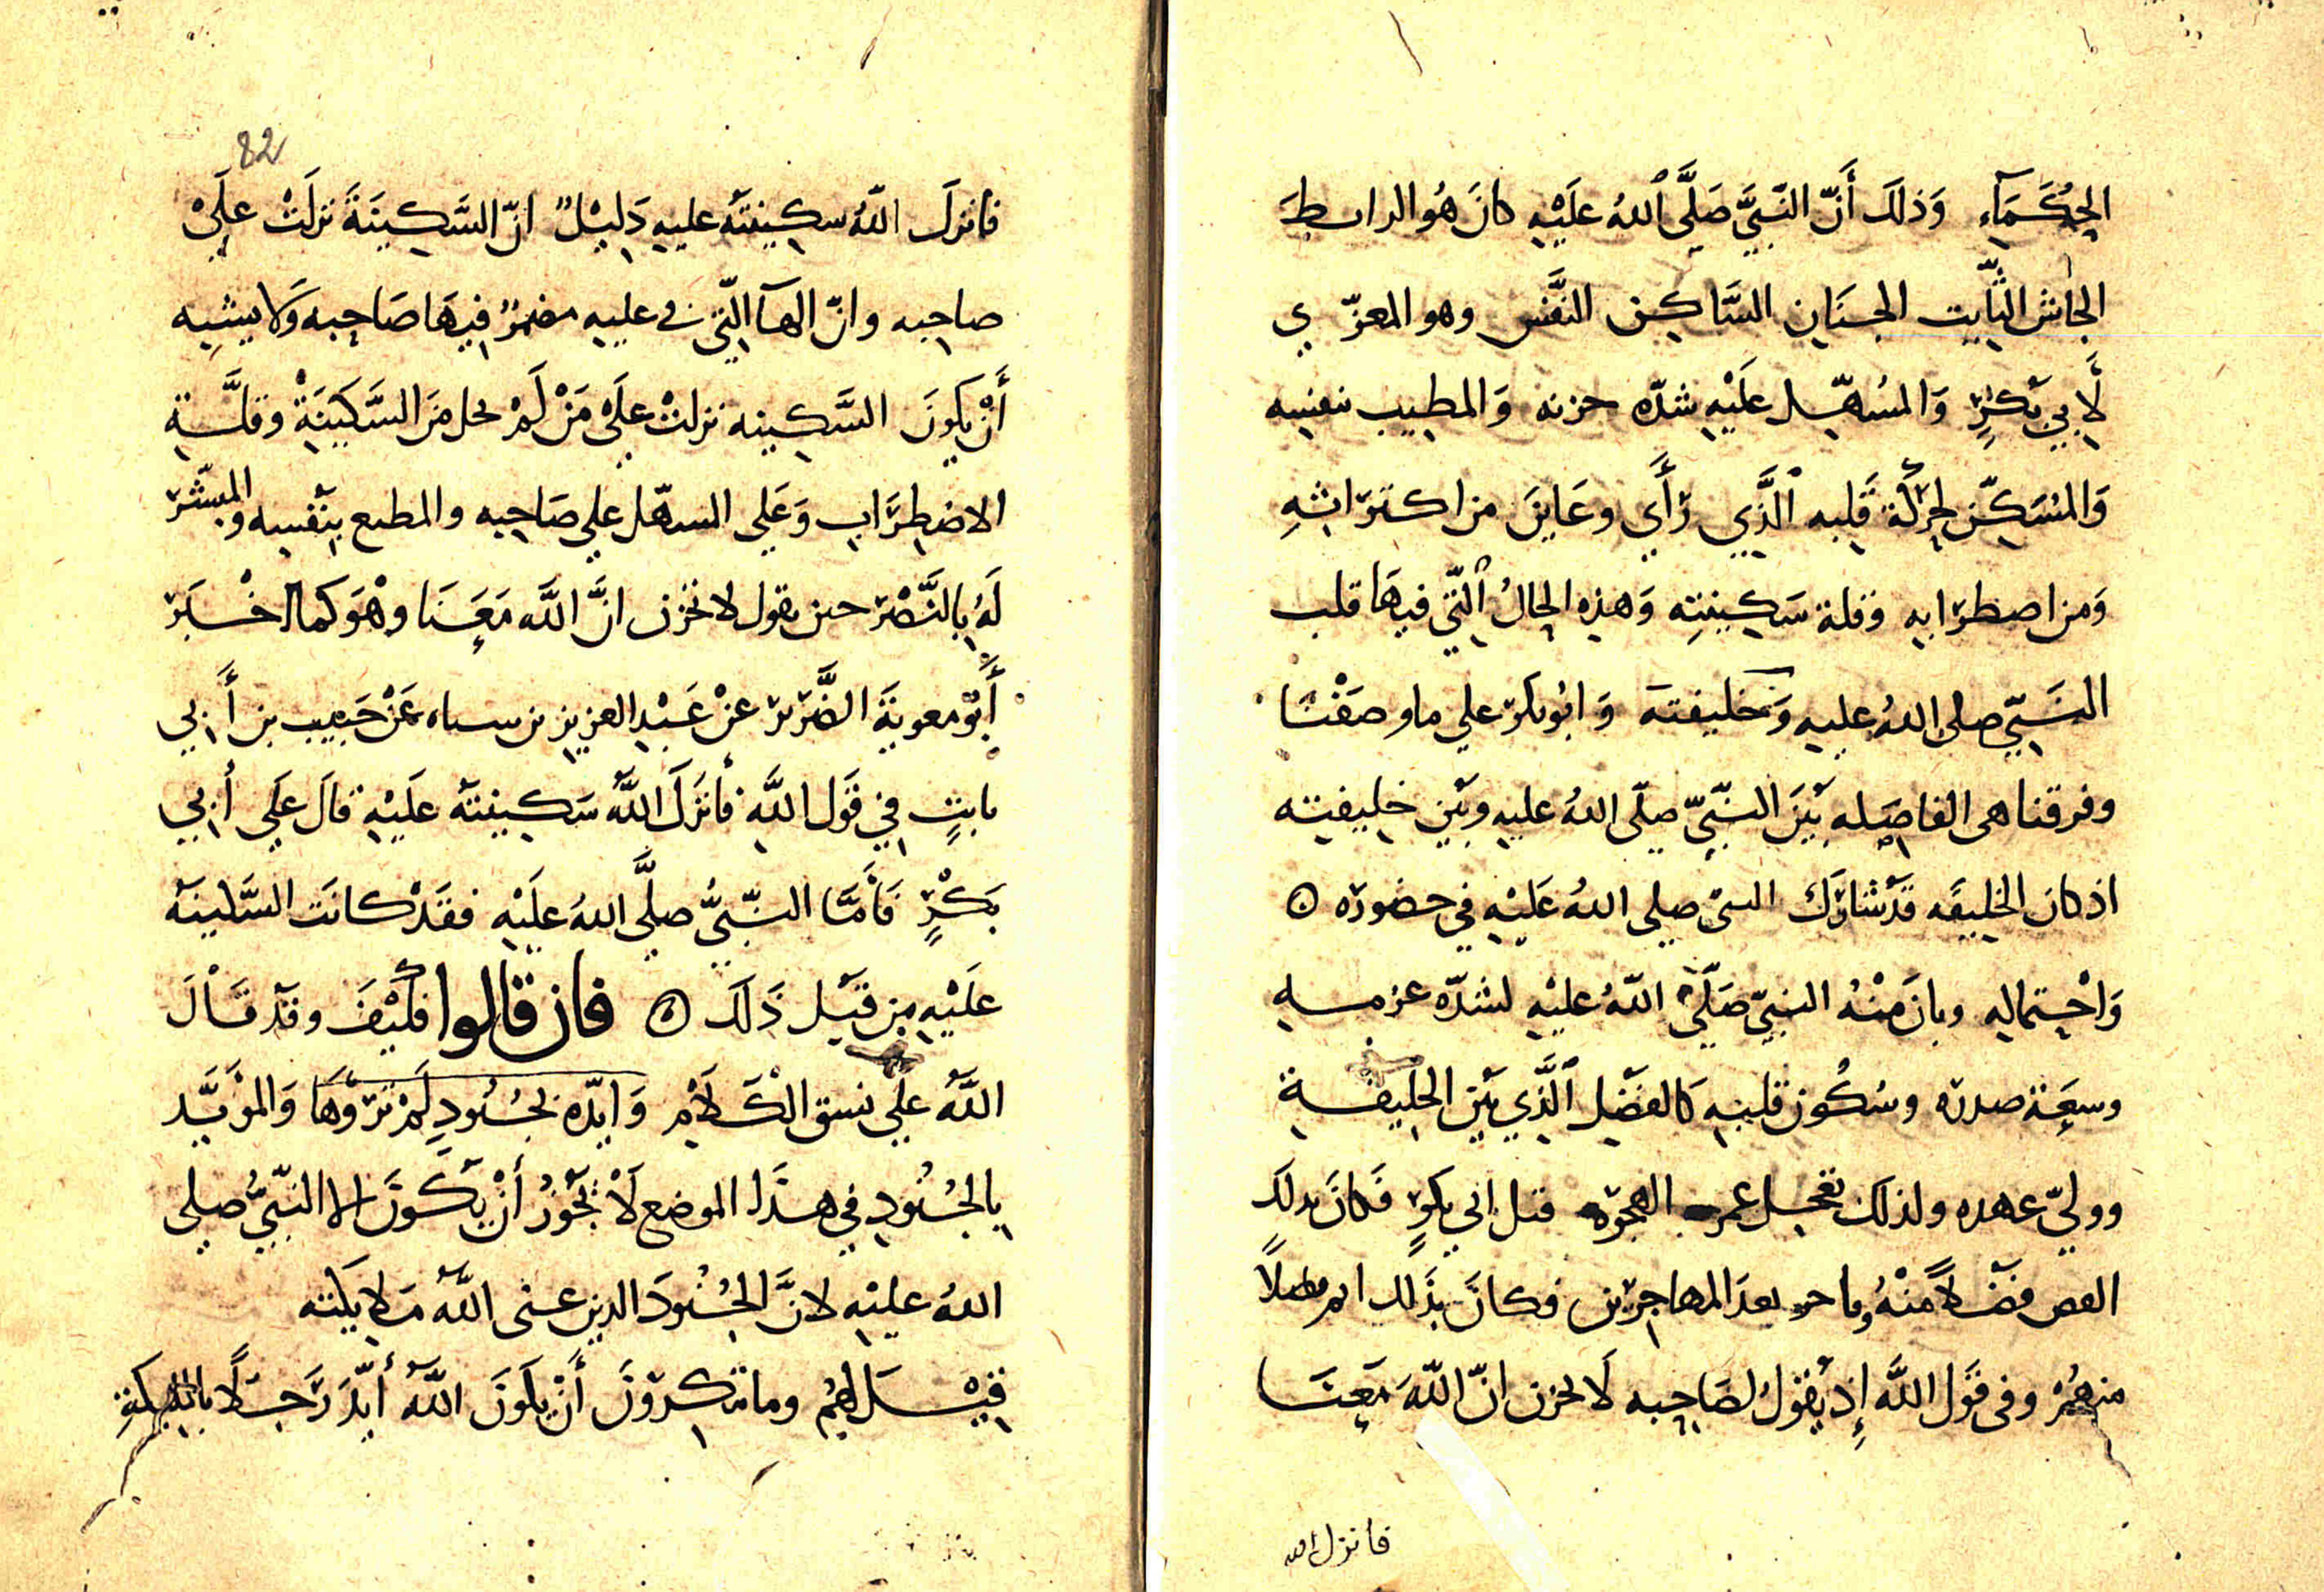 الحُكَمَآءِ وَذلَك أَنّ النَّبيَّ صَلَّى ٱللهُ عَلَيْهِ كانَ هُو الرابطَ
الجاش الثّابت الجنَانِ السَّاكِن النَّفس وهو المعزّي
لأَبي بَكْرٍ وَالمُسَهّل عَلَيْهِ شدّه حزنه وَالمطيب بنفسِه
وَالمُسَكّن لحرَكَة قَلبه ٱلَّذِي رَأَى وعَايَنَ من اكترَاثِهِ
وَمن اضطرَابِهِ وقلة سَكِينتِه وَهذه الحالُ ٱلتّي فيهَا قلب
النَّبيّ صلى اللهُ عليهِ وَخليفتهَ وَابُوبكر علي ما وصَفْنَا
وفرقنا هى الفاصِله بَيْنَ النَّبيّ صلّى اللهُ عليهِ وبَيْن خليفيته
اذ كان الخليفَه قَدْ شارَك النبىّ صلى اللهُ عَليْهِ في حضوره ۞
وَاحْتماله وبانَ مِنْهُ النبيّ صَلَّى اللّهُ عليْهِ لشدّه عزمه
وسِعَة صدره وسُكُون قلبهِ كالفضْل ٱلَّذِي بَيْن الخليفة
ووليّ عهده ولذلك الهجرَه قبل ابي بكرٍ فَكانَ بذلَك
فَضْلاً مِنْهُ بعدَ المهاجرين فكانَ بذَلك
منهُمْ وفى قوَل اللَّه إِذ يقُولُ لصَاحبه لَا تحزن انّ اللّهَ مَعنَا
فانزل الله
82
فانزلَ اللّهُ سكِينتَهُ عليهِ دَليْلٌ انّ السَّكِينَةَ نزلَتْ علَيْ
صاحِبه وانّ الهآ الّتي في عليهِ مضمرٌ فيهَا صَاحِبه وَلا يشبه
أَنْ يكونَ السَّكِينه نزلتْ علَى مَنْ لَمْ يحل مَن السَّكِينَةْ وقلَّةِ
الاضطرَاب وَعَلى السهّل علي صَاحِبه والمطيع بِنَفْسه والمبشر
لَهُ بِالنَّصْر حين يقول لا تحْزن انَّ اللَّه مَعَنَا وهْوَ كما اخْبَر
أَبُو معوية الضَّرير عنْ عَبْد العزيز بن سياه عَنْ حَبيب بن أَبي
ثابتٍ في قوَل اللَّهِ فأَنْزَلَ اللَّهُ سَكِينتَهُ عَلَيْهِ قالَ علَى أَبي
بَكْرٍ فَأَمَّا النَّبيُّ صلَّى اللهُ علَيْهِ فقَدْ كانَت السَّكينَه
عَلَيْهِ مِن قبَل ذَلَك ۞ فان قالوا فكَيْفَ وقدْ قَالَ
اللَّهُ علَي نسق الكَلَامِ وَايّده بجُنُودٍ لَمْ ترَوْهَا وَالموَيَّد
بِالجُنُودِ في هذَا الموضع لَا يجُوْزُ أَنْ يكَونَ الا النَّبيُّ صلي
اللهُ عليْهِ لانَّ الجُنُودَ الدين عنى اللَّهُ مَلايكَته
قيْلَ لهُمْ وما تنكِروْنَ أَنْ يكَونَ اللَّهُ أَيّدَ رَجُلاً بالملايكةِ